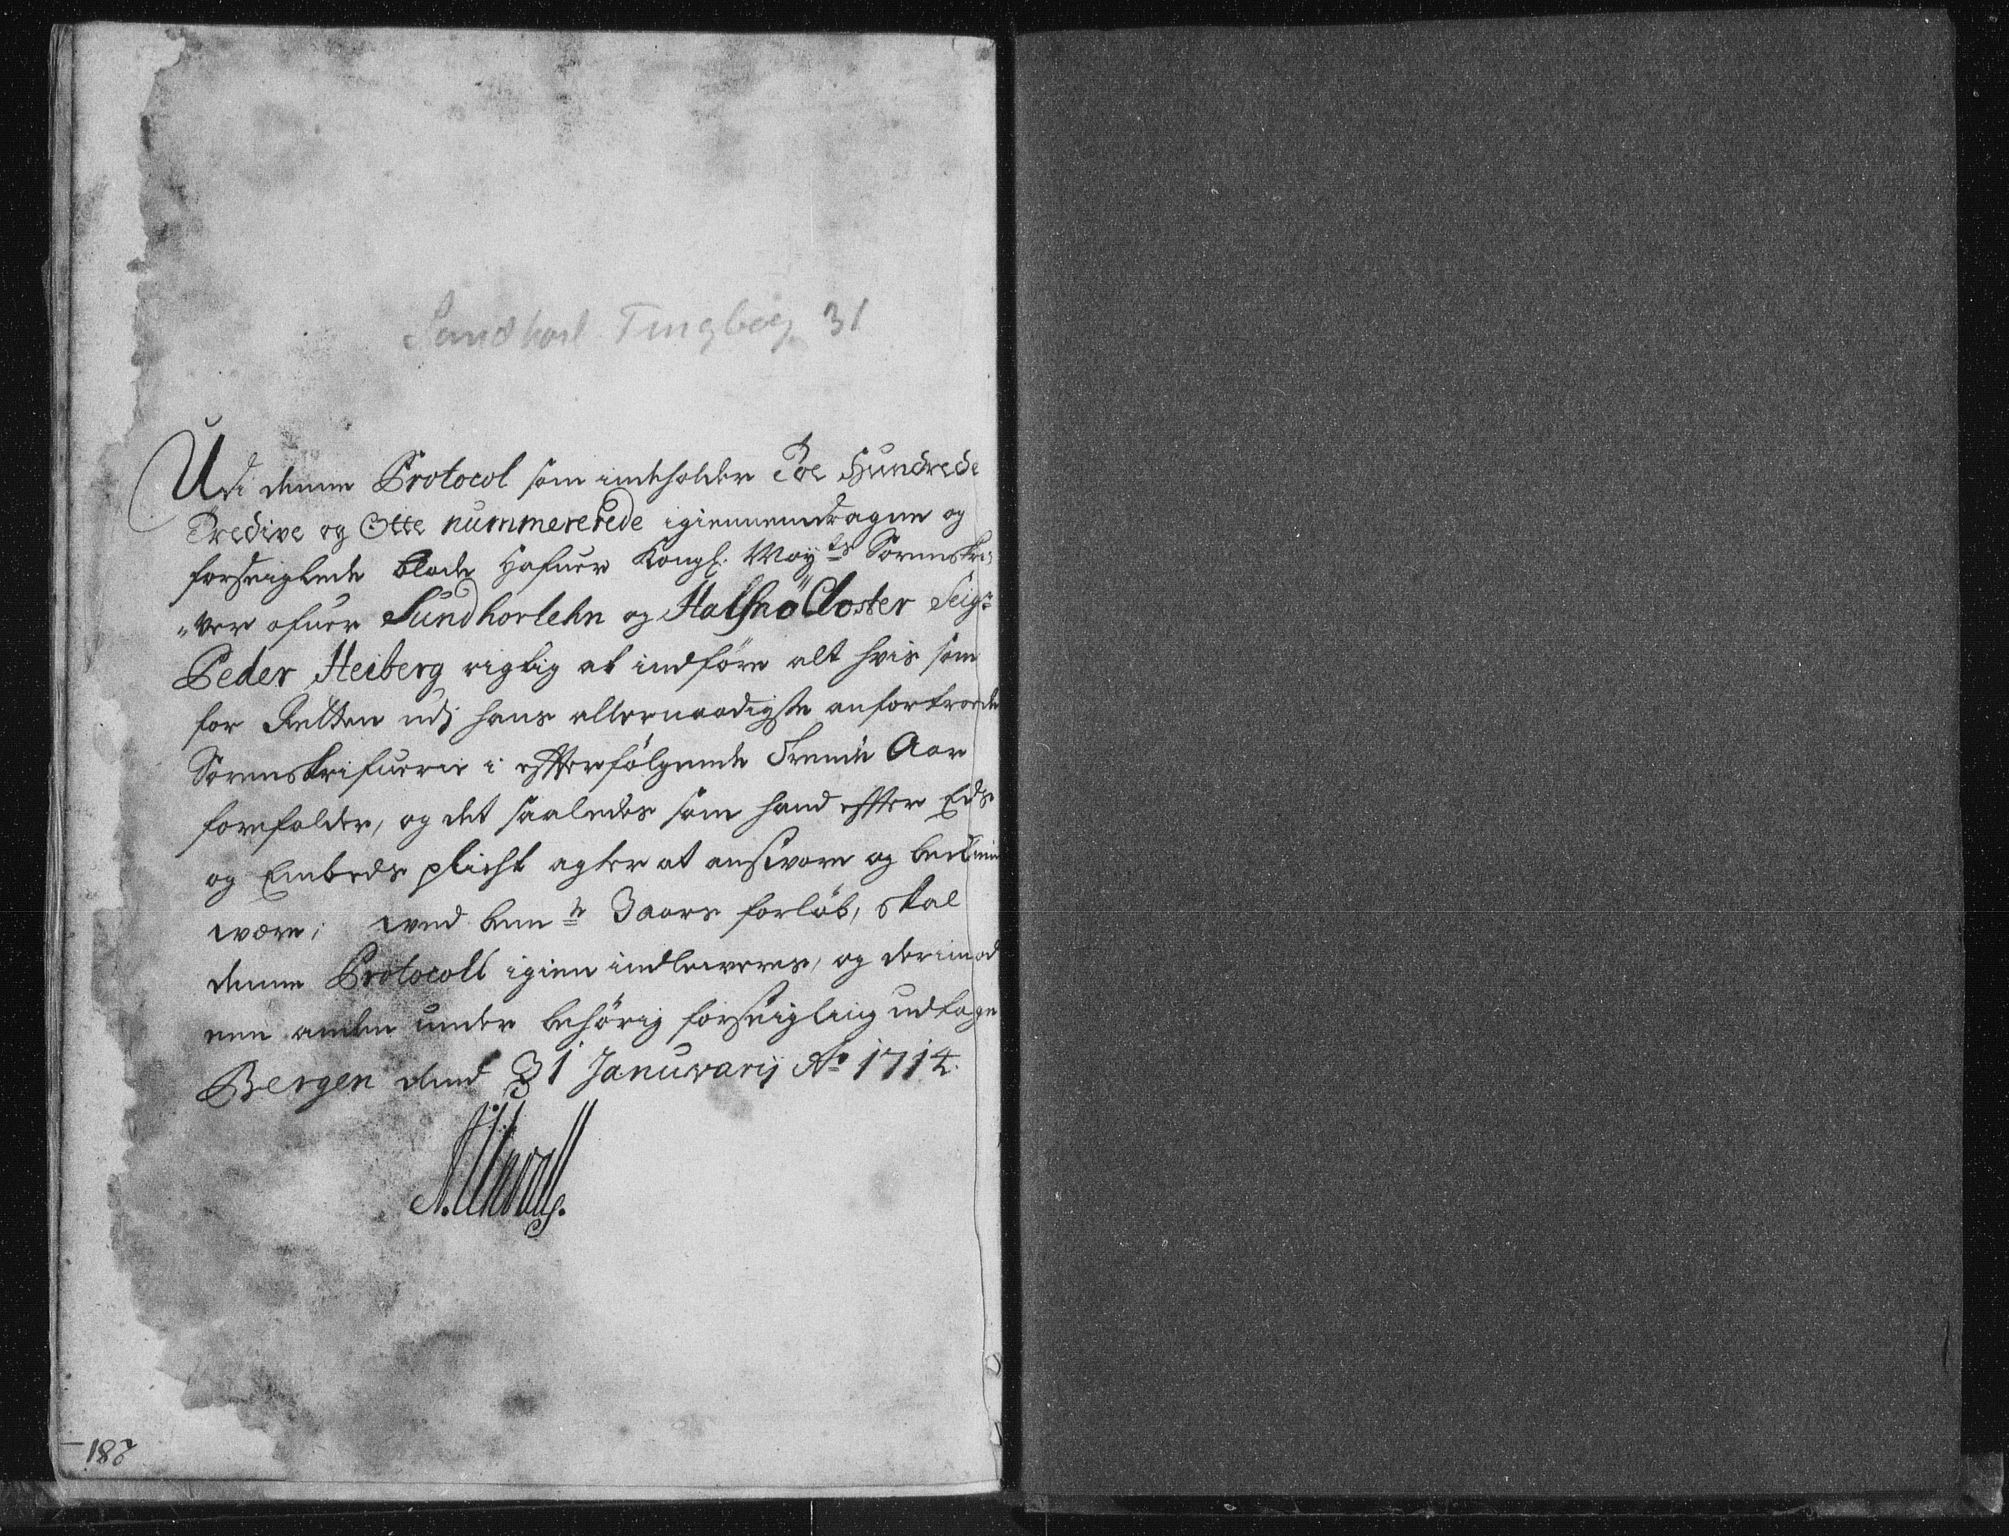 Sundhorl. Tingbog 31
Udi denne Protocol som indeholder Toe Hundrede
Tredive og Otte nummererede igiennemdragne og
forseiglede blade Hafuer Kongl: May:ts Sorenskri-
"ver ofuer Sundhorlehn og Halsnö Closter Seigr
Peder Heiberg rigtig at indføre alt hvis som
for Retten udj hans allernaadigste anfortroede
Sorenskrifuerie i efterfølgende Trende Aar
forefalder, og det saaledes som hand efter Eds
og Embeds plicht agter at ansvare og bekiendt
være; ved bem:te 3 aars forløb, skal
denne Protocoll igien indleveres, og derimod
een anden under behörig forseigling udtages
Bergen dend 31 Januvarij Ao 1714.
187